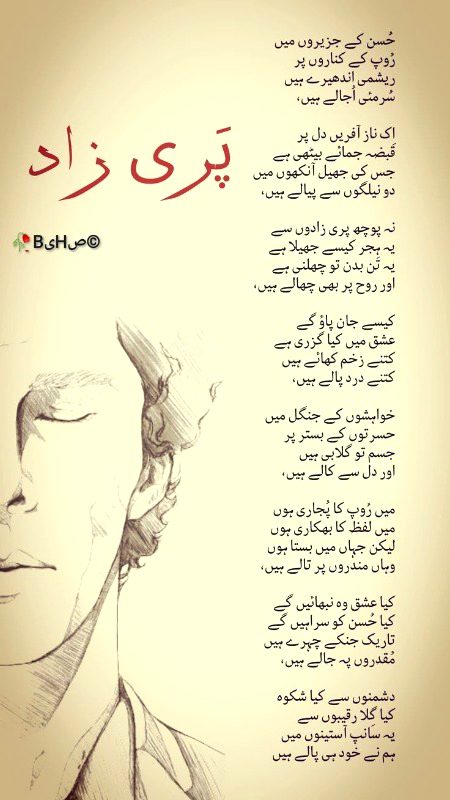 حُسن کے جزیروں میں
رُوپ کے کناروں پر
ریشمی اندھیرے ہیں
سُرمئی اُجالے ہیں،
اِک ناز آفریں دل پر
قَبضہ جمائے بیٹھی ہے
جس کی جھیل آنکھوں میں
دو نیلگوں سے پیالے ہیں،
پَری زاد
نہ پوچھ پری زادوں سے
یہ ہجر کیسے جھیلا ہے
یہ تَن بدن تو چھلنی ہے
اور روح پر بھی چھالے ہیں،
©صBیH
کیسے جان پاؤ گے
عشق میں کیا گزری ہے
کتنے زخم کھائے ہیں
کتنے درد پالے ہیں،
خواہشوں کے جنگل میں
حسرتوں کے بستر پر
جسم تو گلابی ہیں
اور دل سے کالے ہیں،
میں رُوپ کا پُجاری ہوں
میں لفظ کا بھکاری ہوں
لیکن جہاں میں بستا ہوں
وہاں مندروں پر تالے ہیں،
کیا عشق وہ نبھائیں گے
کیا حُسن کو سراہیں گے
تاریک جنکے چہرے ہیں
مُقدروں پہ جالے ہیں،
دشمنوں سے کیا شکوہ
کیا گِلا رقیبوں سے
یہ سانپ آستینوں میں
ہم نے خود ہی پالے ہیں